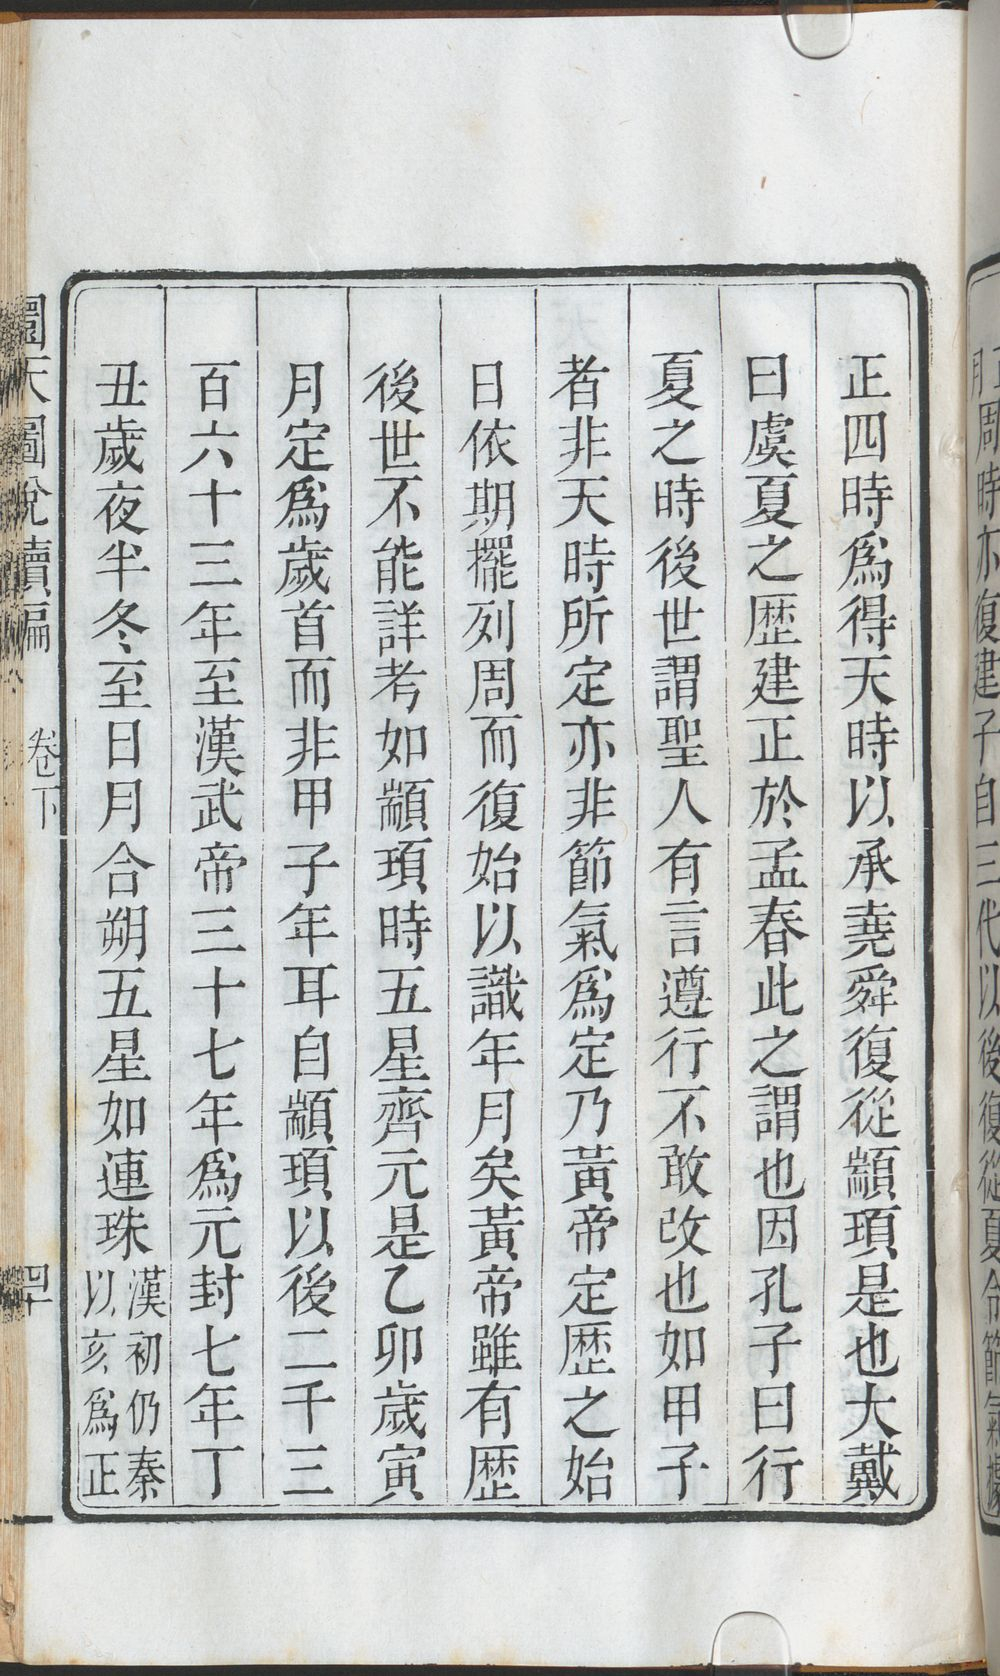 正四時為得天時以承堯舜復從顓頊是也大戴
曰虞夏之歴建正於孟春此之謂也因孔子曰行
夏之時後世謂聖人有言遵行不敢改也如甲子
者非天時所定亦非節氣為定乃黃帝定歴之始
日依期擺列周而復始以識年月矣黃帝雖有歴
後世不能詳考如顓頊時五星齊元是乙卯歲寅
月定為歲首而非甲子年耳自顓頊以後二千三
百六十三年至漢武帝三十七年為元封七年丁
丑歲夜半冬至日月合朔五星如連珠漢初仍秦
以亥為正
圜天圖說續編
卷下
四十
月周時亦復建子自三代以後復從夏令節氣據